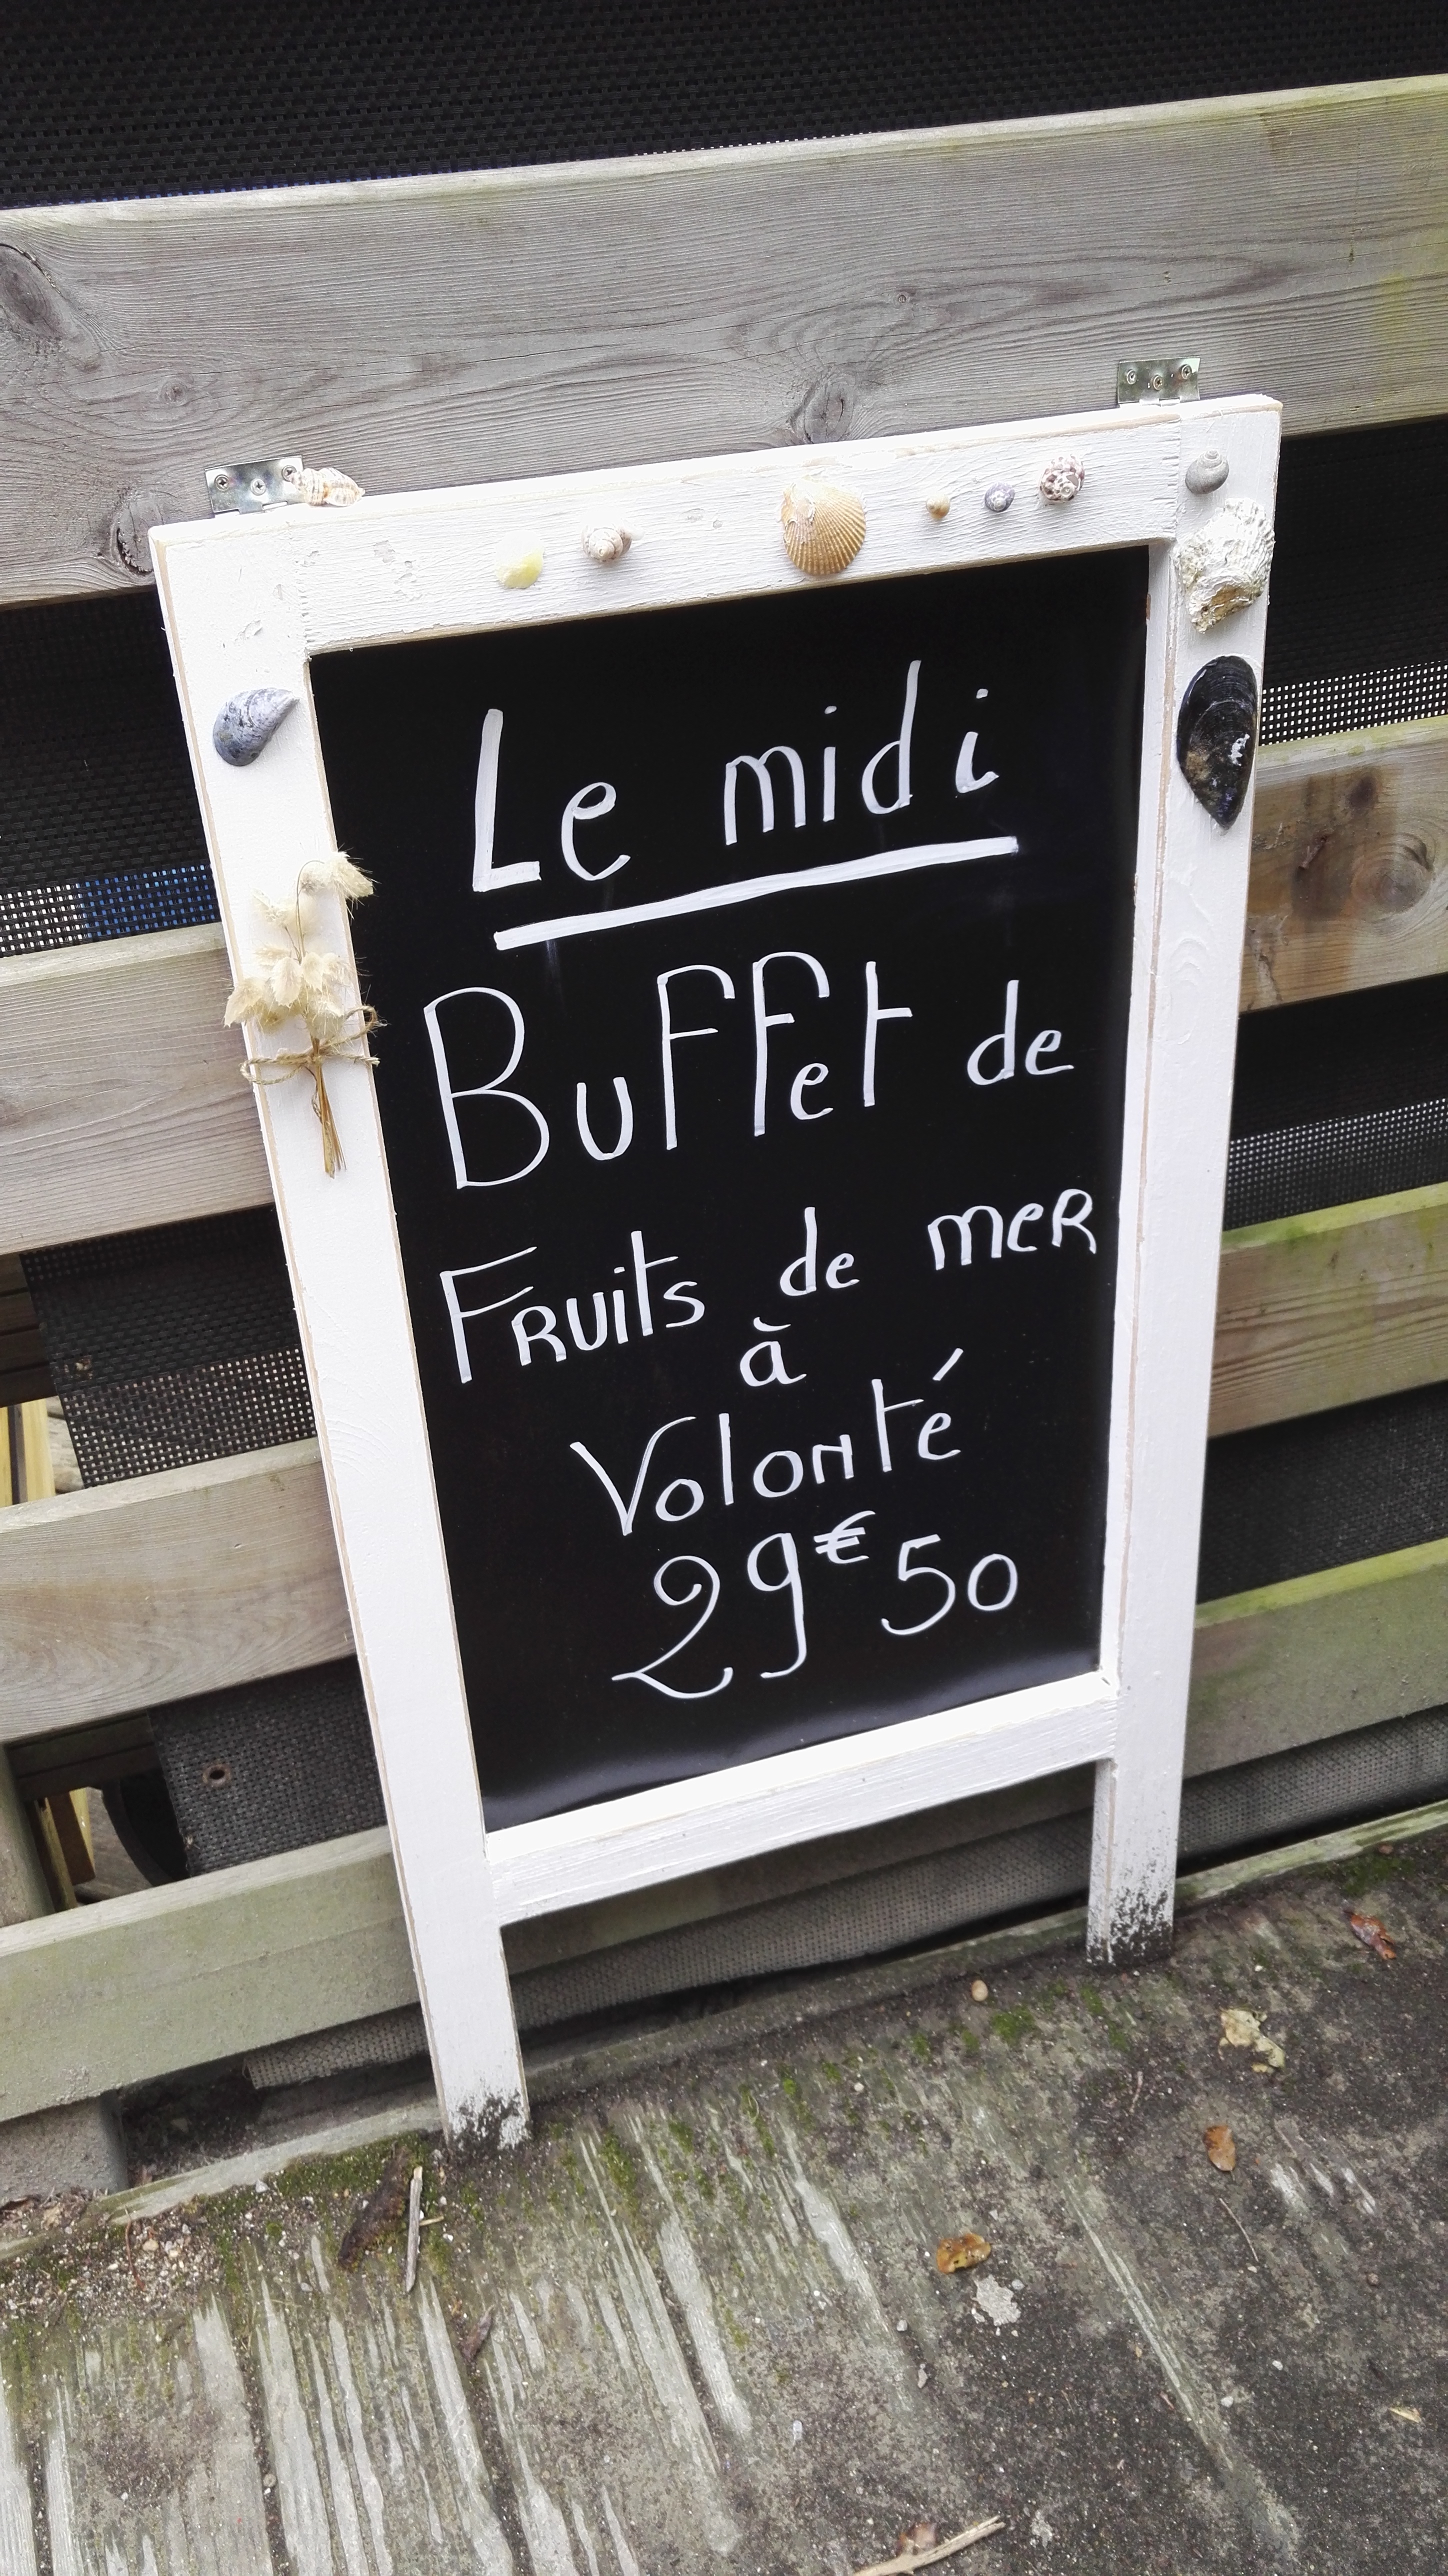 Le midi
Buffet de
Fruits de mer
à
Volonté
29€50